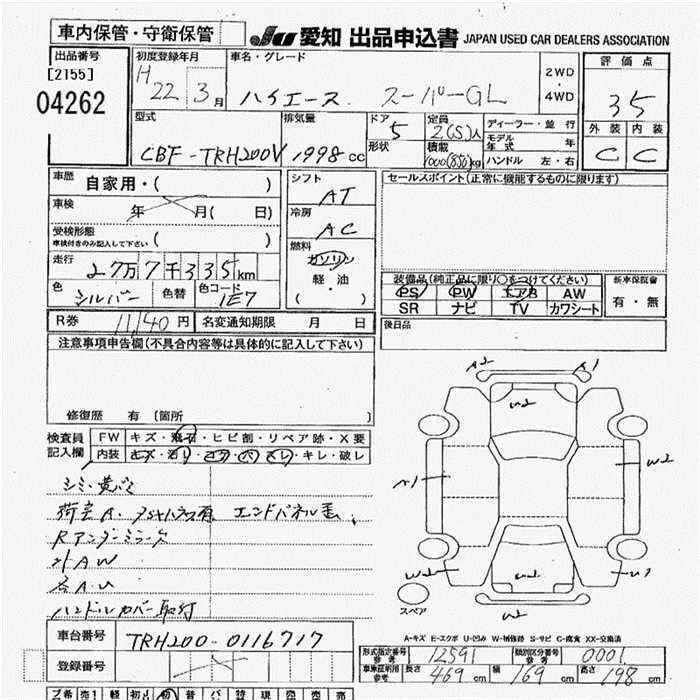 車内保管・守衛保管
JU 愛知 出品申込書 JAPAN USED CAR DEALERS ASSOCIATION
出品番号
[2155]
04262
初度登録年月
H 22 3月
車名・グレード
ハイエース スーパーGL
2WD
・
4WD
評価点
3.5
外装 内装
C C
型式
CBF-TRH200V
排気量
1998 cc
ドア
5
形状
定員
2(5)人
積載
1000(850)kg
ディーラー・並行
モデル
年式 年
ハンドル 左・右
車歴
自家用・( )
車検
年 月( 日)
受検形態
車検付きのみ記入して下さい ( )
走行
27万7千335km
色
シルバー
色替
色コード
1E7
シフト
AT
冷房
AC
燃料
ガソリン
軽・油
( )
セールスポイント(正常に機能するものに限ります)
装備品(純正品に限り○をつけてください)
PS PW エアB AW
SR ナビ TV カワシート
新車保証書
有・無
後日品
R券 11,140円 名変通知期限 月 日
注意事項申告欄(不具合内容等は具体的に記入して下さい)
修復歴 有〔箇所 〕
検査員
記入欄
FW キズ・飛石・ヒビ割・リペア跡・X要
内装 キズ・汚レ・コゲ・穴・スレ・キレ・破レ
シミ・黄バミ
エンドパネル
Rアンダーミラー
ハンドルカバー取付
A2
A1
W2
W2
A1
W2
W2
W2
スペア
A-キズ E-エクボ U-凹み W-補修跡 S-サビ C-腐食 XX-交換済
車台番号
TRH200-0116717
登録番号
形式指定番号
参考
12591
類別区分番号
参考
0001
車庫証明用
参考
長さ 469cm
幅 169cm
高さ 198cm